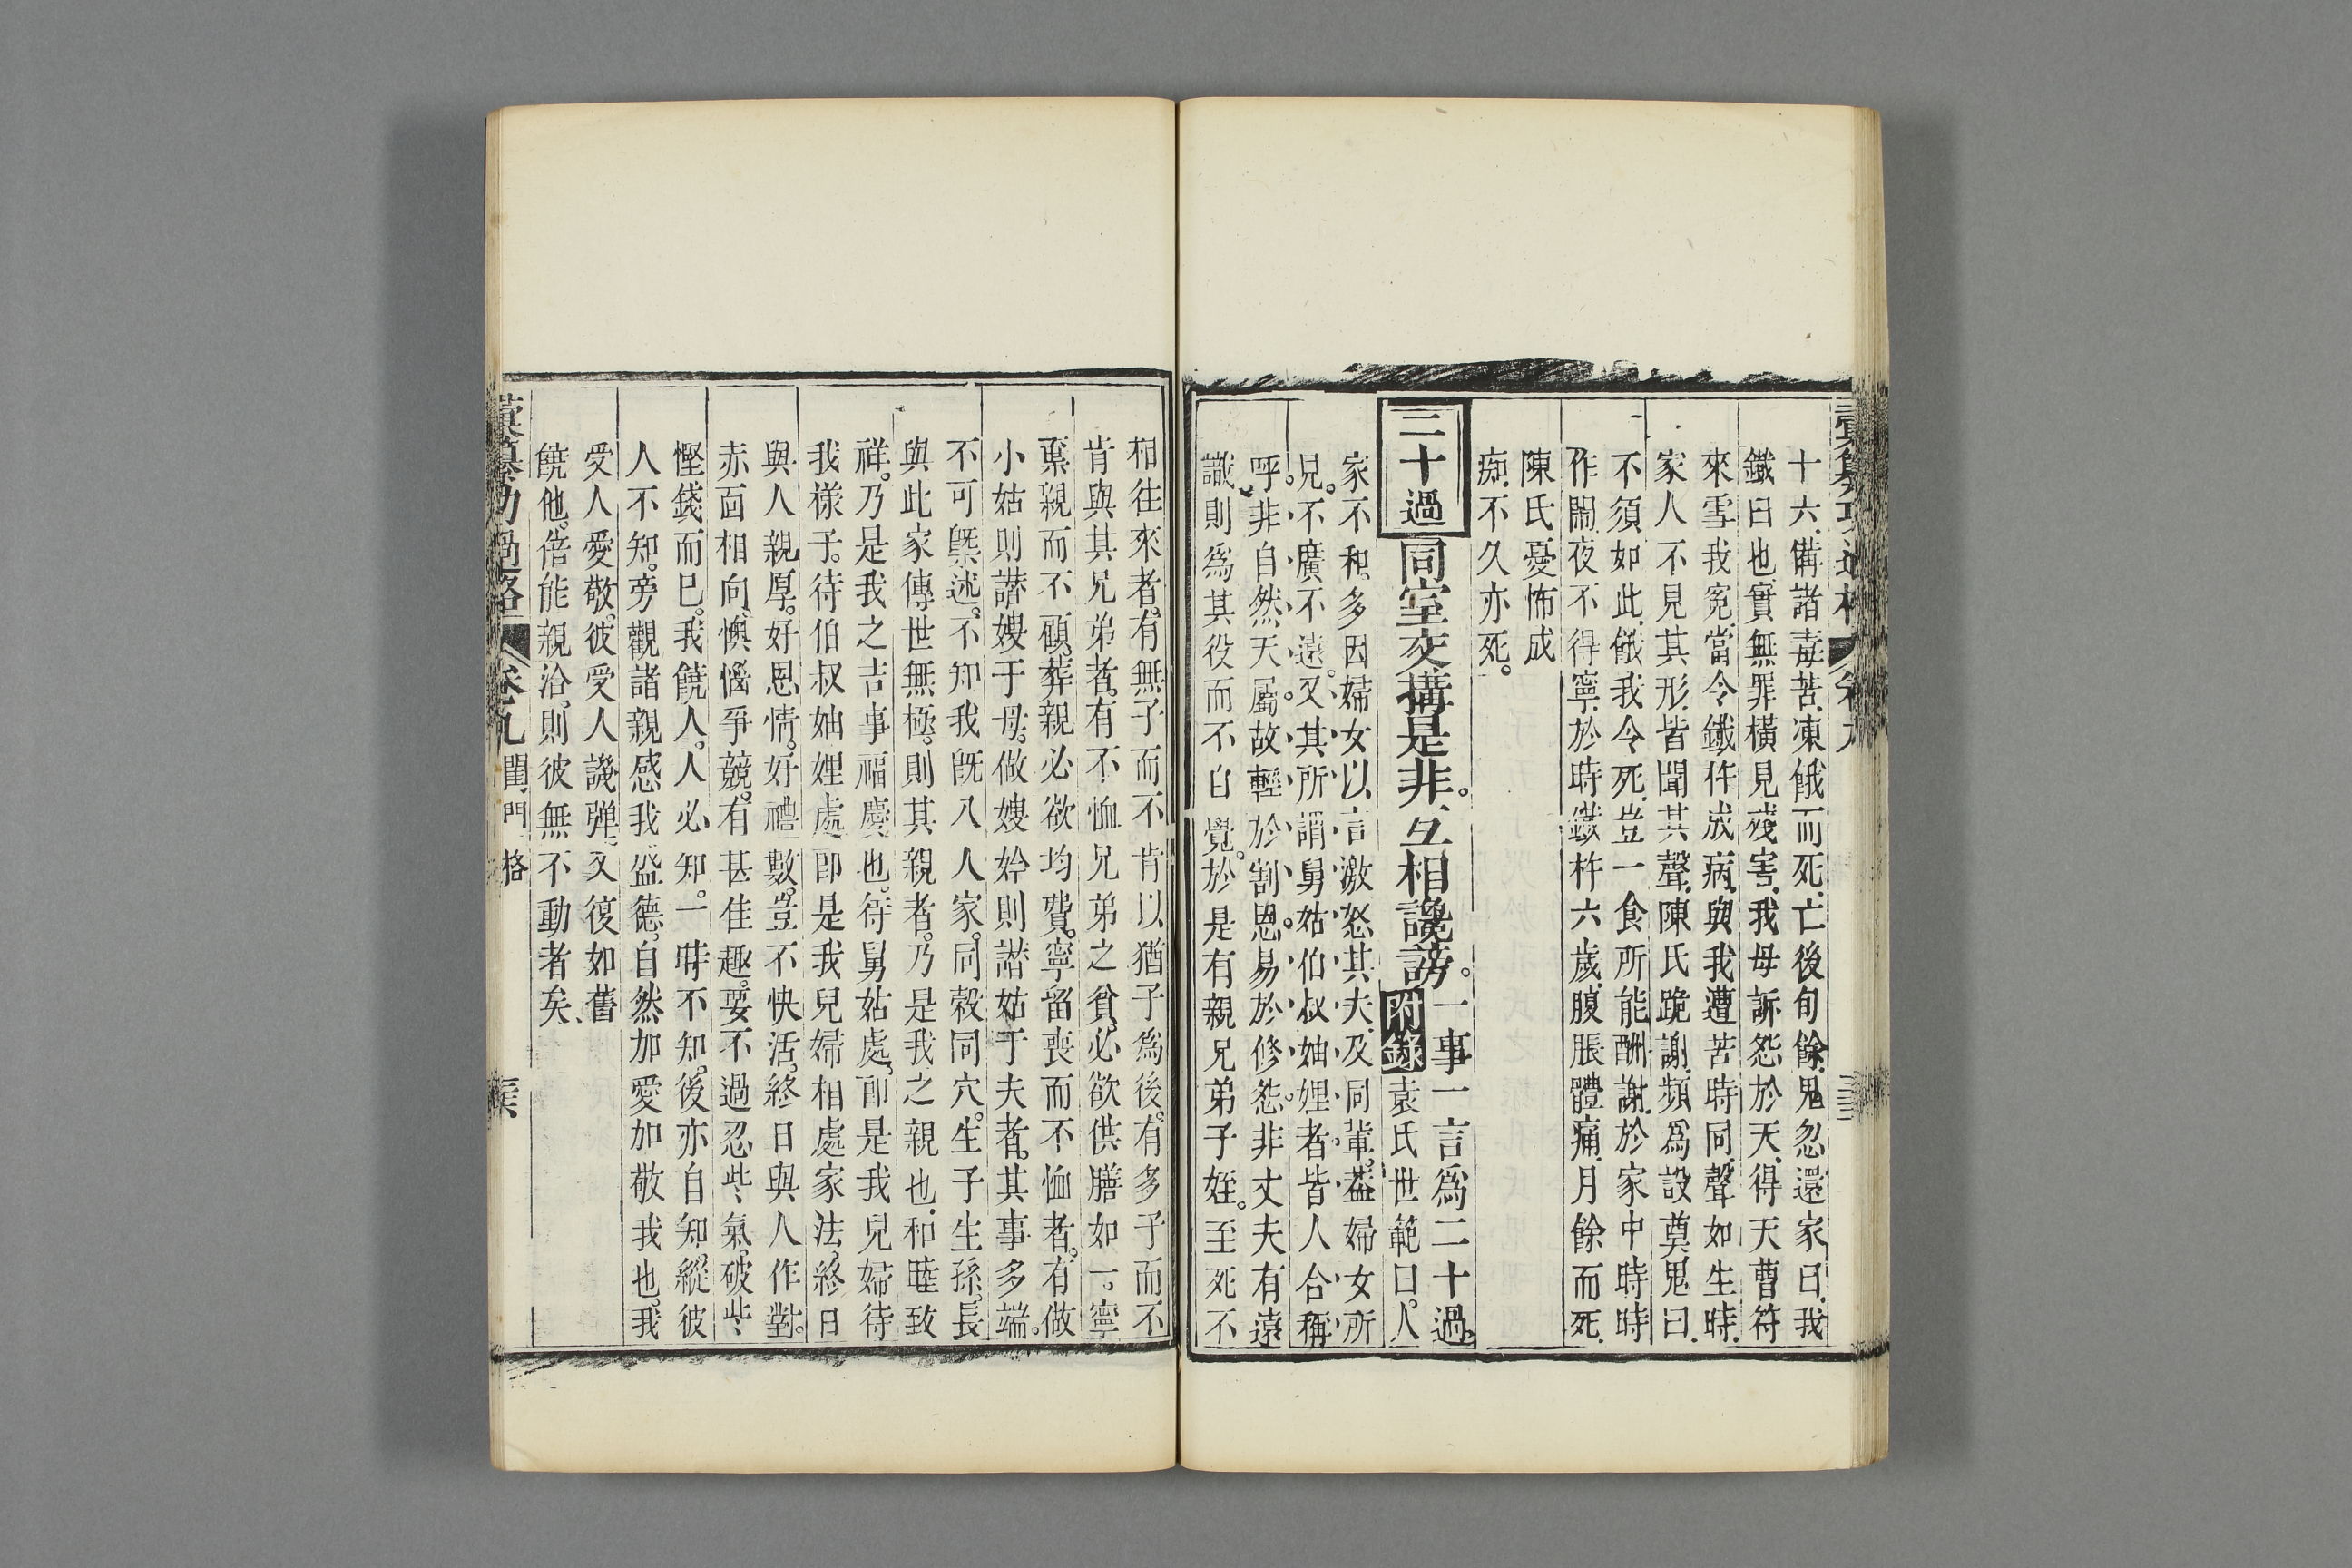 十六備諸毒苦凍餓而死亡後旬餘鬼忽還家曰我
鐵臼也實無罪橫見殘害我母訴怨於天得天曹符
來雪我冤當令鐵杵成病與我遭苦時同聲如生時
家人不見其形皆聞其聲陳氏跪謝頻為設奠鬼曰
不須如此餓我令死豈一食所能酬謝於家中時時
作鬧夜不得寧於時鐵杵六歲腹脹體痛月餘而死
陳氏憂怖成
痴不久亦死。
二十過 同室交搆是非。互相讒謗。一事一言為二十過。
附錄 袁氏世範曰。人
家不和多因婦女以言激怒其夫及同輩。葢婦女所
見。不廣不遠。又其所謂舅姑伯叔妯娌者皆人合稱
呼。非自然天屬。故輕於割恩。易於修怨。非丈夫有遠
識則爲其役而不自覺。於是有親兄弟子姪。至死不
相往來者。有無子而不肯以猶子爲後。有多子而不
肯與其兄弟者。有不恤兄弟之貧。必欲供膳如一。寧
棄親而不顧。葬親必欲均費。寧留喪而不恤者。有做
小姑則譖嫂于母。做嫂妗則譖姑于夫者。其事多端。
不可槩述。不知我既入人家。同榖同穴。生子生孫。長
與此家傳世無極。則其親者。乃是我之親也。和睦致
祥。乃是我之吉事福慶也。待舅姑處。即是我兒婦待
我樣子。待伯叔妯娌處即是我兒婦相處家法。終日
與人親厚。好恩情。好禮數。豈不快活。終日與人作對。
赤面相向。懊惱爭競。有甚佳趣。要不過忍些氣。破些
慳錢而已。我饒人。人必知。一時不知。後亦自知。縱彼
人不知。旁觀諸親感我盛德。自然加愛加敬我也。我
受人愛敬。彼受人譏彈。又復如舊
饒他。倍能親洽。則彼無不動者矣
彙纂功過格 卷九 閨門格